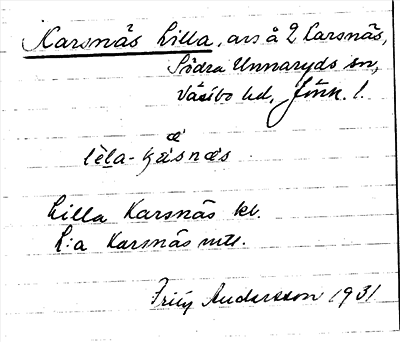 Karsnäs Lilla, avs å 2 Karsnäs,
Södra Unnaryds sn,
Västbo hd, Jönk. l.
Lilla Karsnäs kl.
L:a Karsnäs mtl.
Andersson 1931